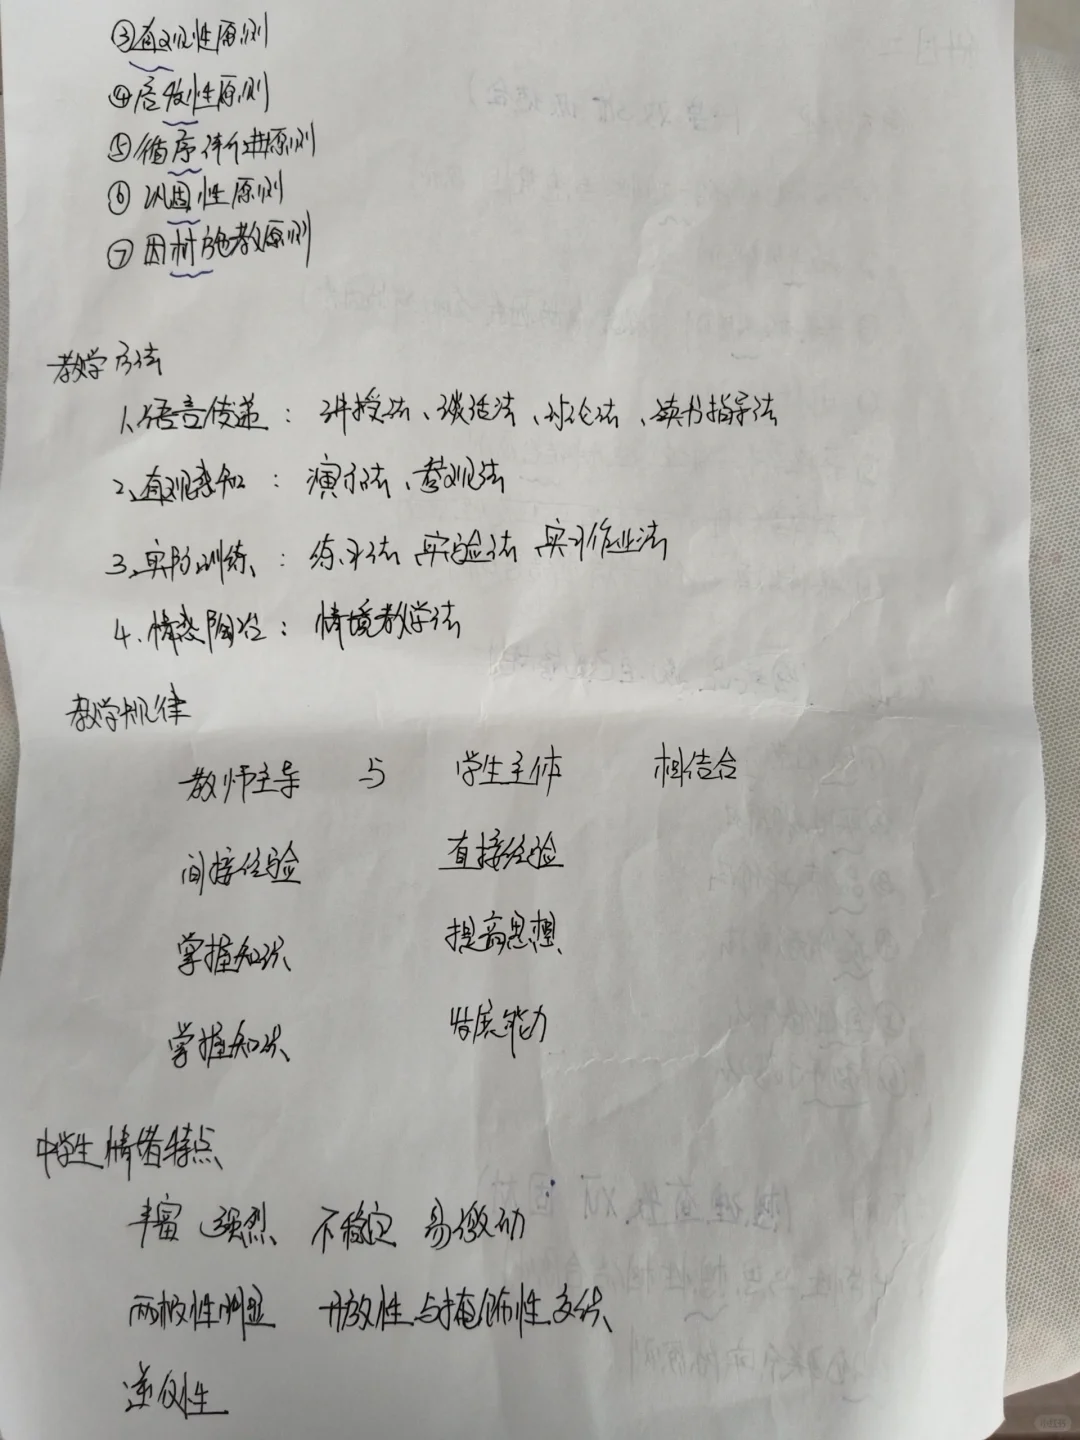 ③直观性原则
④启发性原则
⑤循序渐进原则
⑥巩固性原则
⑦因材施教原则
教学方法
1.语言传递：讲授法、谈话法、讨论法、读书指导法
2.直观感知：演示法、参观法
3.实际训练：练习法 实验法 实习作业法
4.情感陶冶：情境教学法
教学规律
教师主导 与 学生主体 相结合
间接经验 直接经验
掌握知识 提高思想
掌握知识 发展能力
中学生情绪特点
丰富 强烈 不稳定 易激动
两极性明显 开放性与掩饰性交织
逆反性
小红书